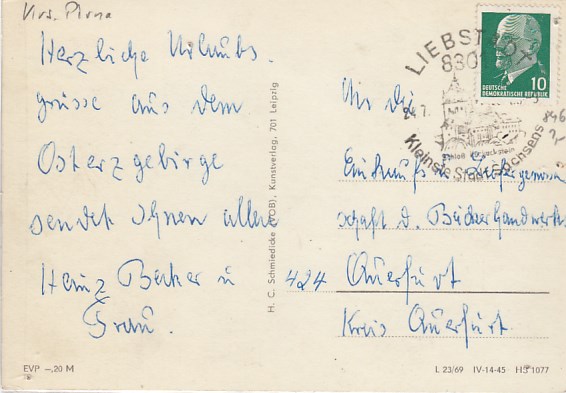 Krs. Pirna
Herzliche Urlaubs-
grüsse aus dem
Osterzgebirge
sendet Ihnen allen
Heinz Becker u
Frau.
EVP –,20 M
H. C. Schmiedicke (VOB), Kunstverlag, 701 Leipzig
LIEBSTADT
8301
24.7.
Kleinste Stadt Sachsens
10
DEUTSCHE
DEMOKRATISCHE REPUBLIK
846
An die
Einkaufs u. Liefergenossen
schaft d. Bäckerhandwerks
424 Querfurt
Kreis Querfurt.
L 23/69 IV-14-45 HS 1077